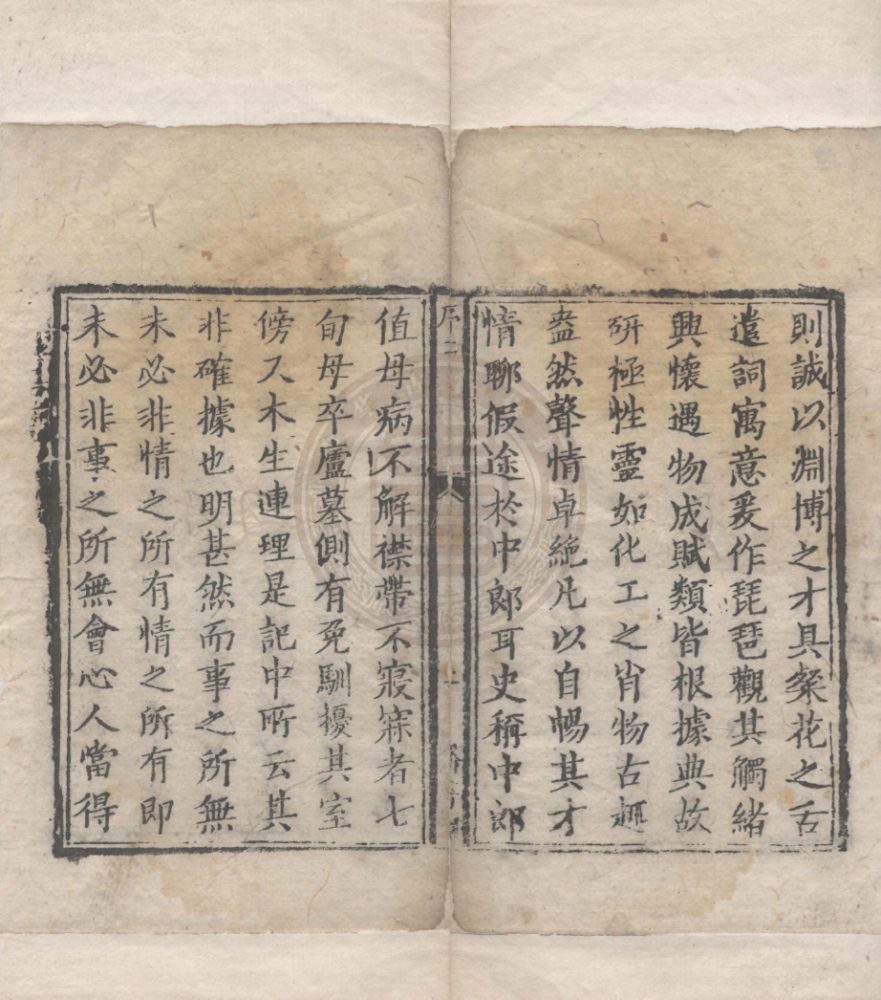 則誠以淵博之才具粲花之舌
遣詞寓意爰作琵琶觀其觸緒
興懷遇物成賦類皆根據典故
研極性靈如化工之肖物古趣
盎然聲情卓絶凡以自暢其才
情聊假途於中郎耳史稱中郎
序二
值母病不解襟帶不寢寐者七
旬母卒廬墓側有兔馴擾其室
傍又木生連理是記中所云其
非確據也明甚然而事之所無
未必非情之所有情之所有即
未必非事之所無會心人當得